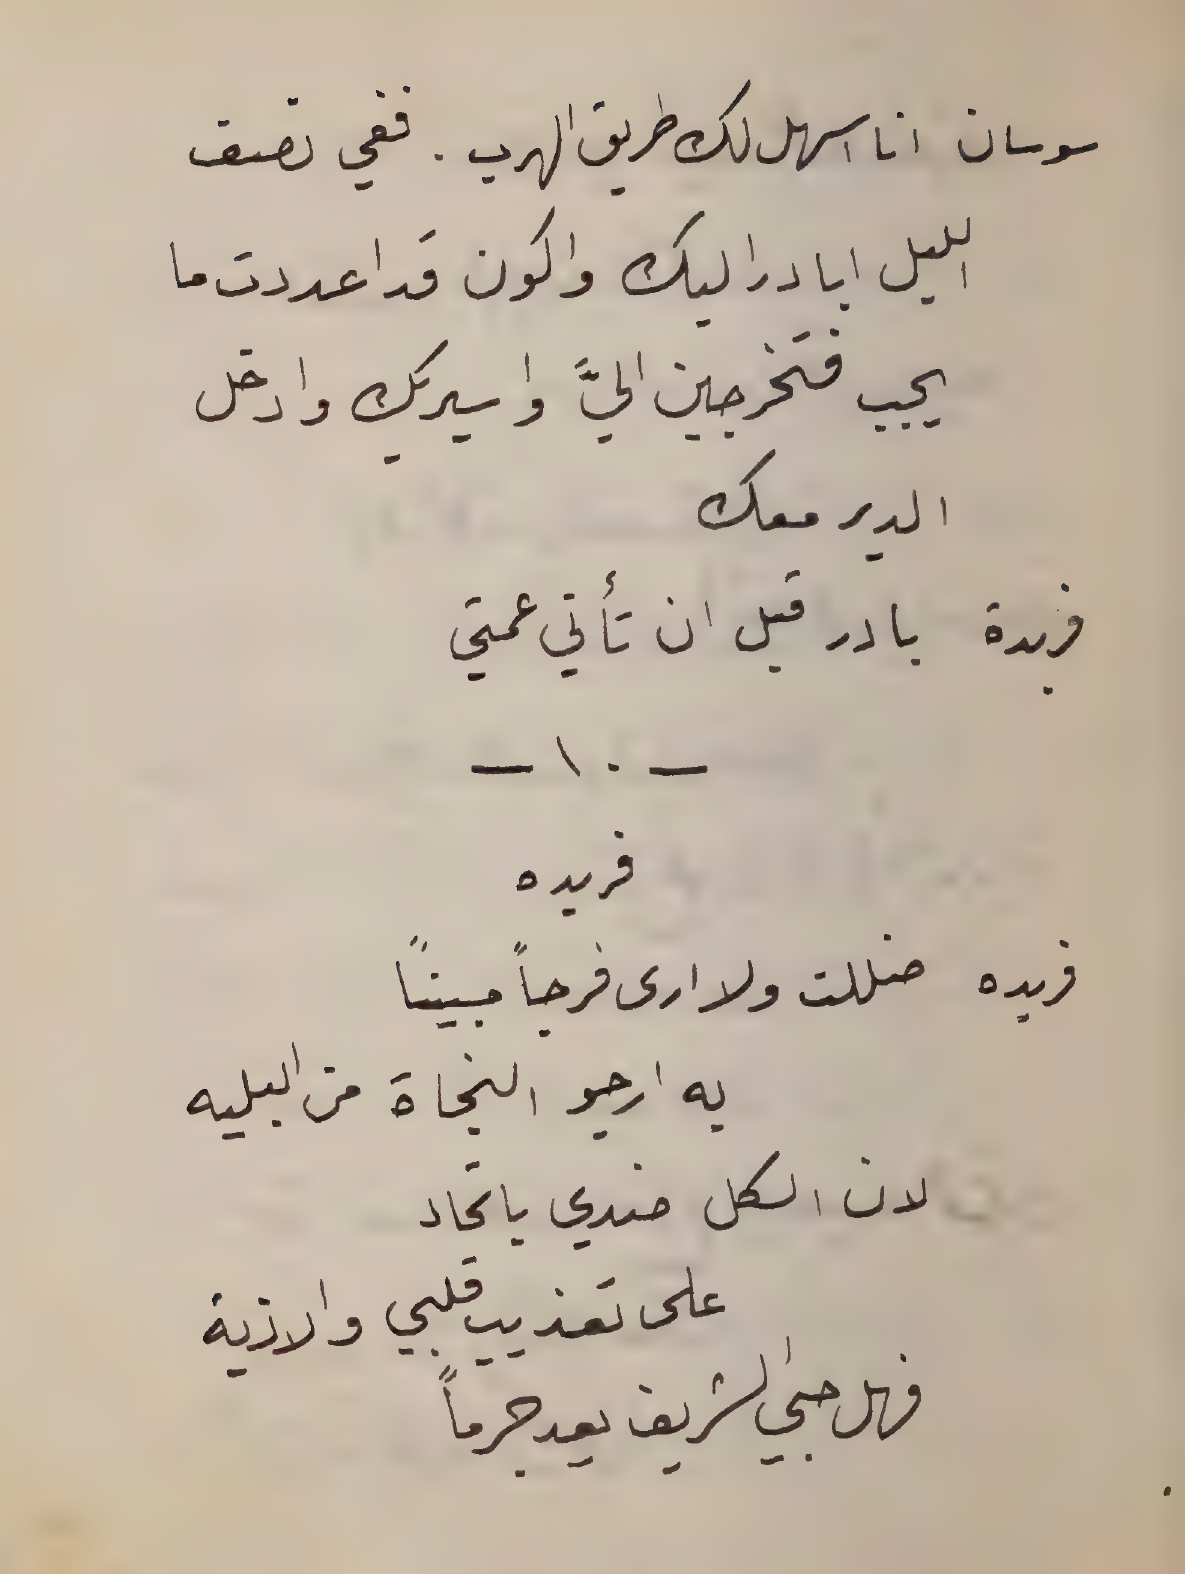 سوسان انا اسهل لك طريق الهرب . ففي نصف
الليل ابادر اليك واكون قد اعددت ما
يجب فتخرجين اليَّ واسير بك وادخل
الدير معك
فريدة بادر قبل ان تأتي عمتي
— ١٠ —
فريده
فريده ضللت ولا ارى فرجاً مبيناً
به ارجو النجاة من البليه
لان الكل ضدي باتحاد
على تعذيب قلبي والاذية
فهل حبي الشريف يعد جرماً